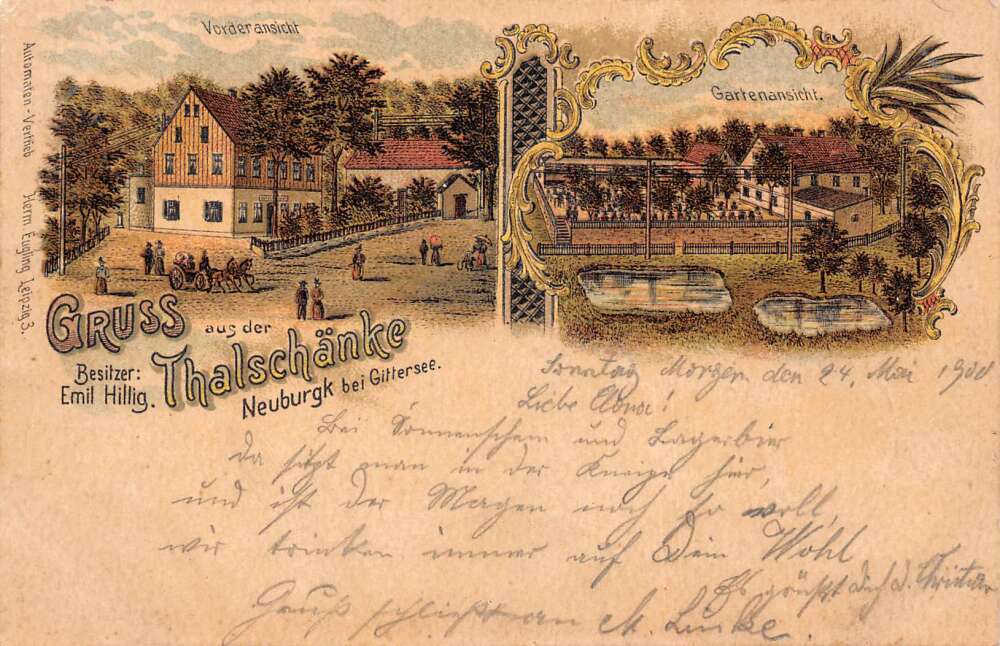 Vorderansicht
Gartenansicht.
Automaten-Vertrieb Herm. Eugling, Leipzig 3.
GRUSS aus der
Thalschänke
Besitzer:
Emil Hillig.
Neuburgk bei Gittersee.
Sonntag Morgen den 24. Mai 1900
Liebe
Bei Sonnenschein und Lagerbier
da sitzt man in der Kneipe hier,
und ist der Magen noch so voll,
wir trinken immer auf Dein Wohl
Es grüßt Dich d.
Gruß schließt an M. Linke.